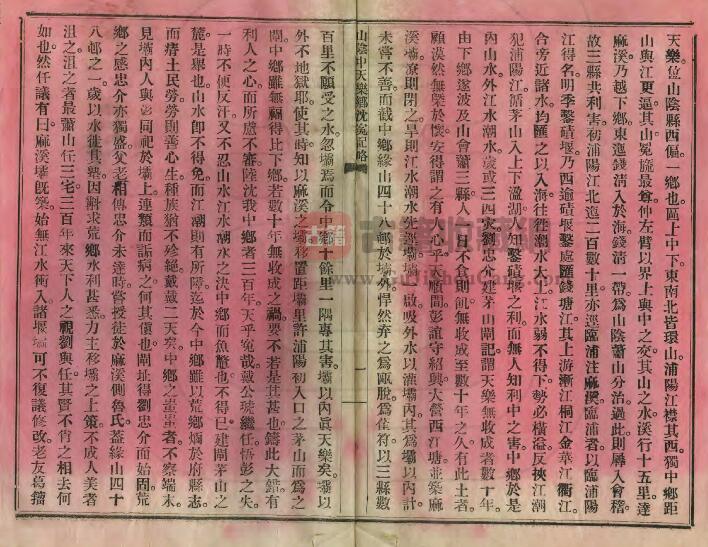 天樂位山陰縣西偏一鄉也區上中下東南北皆環山浦陽江襟其西獨中鄉距
山與江更逼其山冕旒最尊仲左臂以界上與中之交其山之水溪行十五里達
麻溪乃越下鄉東迤錢清入於海錢清一帶為山陰蕭山分治過此則屬入會稽
故三縣共利害初浦陽江北迤二百數十里亦逕臨浦注麻溪臨浦者以臨浦陽
江得名明季鑿磧堰乃西逾磧堰鑿處匯錢塘江其上游漸江桐江金華江衢江
合旁近諸水均匯之以入海往往潮水大上江水弱不得下勢必橫溢反挾江潮
犯浦陽江循茅山入上下盈湖知鑿磧堰之利而無人知利中之害中鄉於是
內山水外江水潮水歲或三四災劉忠介建茅山閘記謂天樂無收成者數十年
由下鄉遂波及山會蕭三縣人一日不食則飢無收成至數十年之久有此土者
顧漠然無槩於懷安得謂之有人心乎天順間彭誼守紹興大營西江塘並築麻
溪壩潦則閉之旱則江水潮水先逕壩壩啟吸外水以灌壩內其為壩以內計
未嘗不善而截中鄉緣山四十八邨於壩外悍然弃之為甌脫為萑苻以三縣數
山陰中天樂鄉沈寃記略
一
百里不願受之水忽壩焉而令中鄉十餘里一隅專其害壩以內眞天樂矣壩以
外不地獄耶使其時知以麻溪之壩移置距壩里許浦陽初入口之茅山而為之
閘中鄉雖無福得比下鄉若數十年無收成之禍要不若是其甚也鑄此大錯有
利人之心而所處不審陸沈我中鄉者三百年天乎寃哉戴公琥繼任悟彭之失
一時不便反汗又不忍山水江水潮水之決中鄉而魚鼈也不得已建閘茅山之
麓是舉也山水卽不得免而江潮則有所障迄於今中鄉雖以荒鄉爛於府縣志
而瘠土民勞勞則善心生種族猶不殄絶戴戴二天矣中鄉之蚩蚩者不察端末
見壩內人與彭同祀於壩上連類而詬病之何其傎也閘址得劉忠介而始固荒
鄉之感忠介亦獨盛父老相傳忠介未達時嘗授徒於麻溪側魯氏葢緣山四十
八邨之一歲以水徙其塾因斠求荒鄉水利甚悉力主移壩之上策不成人美者
沮之沮之者最蕭山任三宅三百年來天下人之視劉與任其賢不肖之相去何
如也然任議有曰麻溪壩旣築始無江水衝入諸堰壩可不復議修改老友葛籀